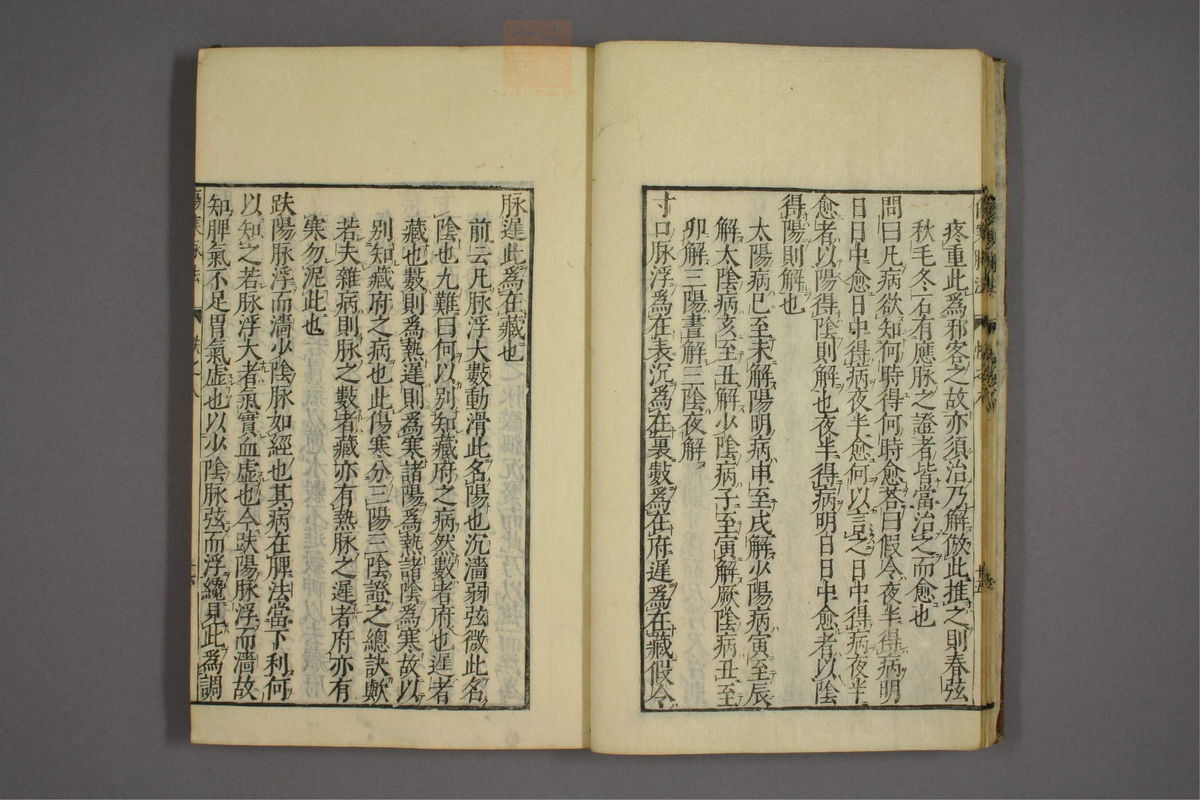 疼重此爲邪客之故亦須治乃解倣此推之則春弦
秋毛冬石有應脉之證者皆當治之而愈也
問曰凡病欲知何時得何時愈荅曰假令夜半得病明
日日中愈日中得病夜半愈何以言之日中得病夜半
愈者以陽得陰則解也夜半得病明日日中愈者以陰
得陽則解也
太陽病巳至未解陽明病申至戌解少陽病寅至辰
解太陰病亥至丑解少陰病子至寅解厥陰病丑至
卯解三陽晝解三陰夜解
寸口脉浮爲在表沉爲在裏數爲在府遲爲在藏假令
十五
脉遲此爲在藏也
前云凡脉浮大數動滑此名陽也沉濇弱弦微此名
陰也九難曰何以別知藏府之病然數者府也遲者
藏也數則爲熱遲則爲寒諸陽爲熱諸陰爲寒故以
別知藏府之病也此傷寒分三陽三陰證之總訣歟
若夫雜病則脉之數者藏亦有熱脉之遲者府亦有
寒勿泥此也
趺陽脉浮而濇少陰脉如經也其病在脾法當下利何
以知之若脉浮大者氣實血虛也今趺陽脉浮而濇故
知脾氣不足胃氣虛也以少陰脉弦而浮纔見此爲調
傷寒脉法